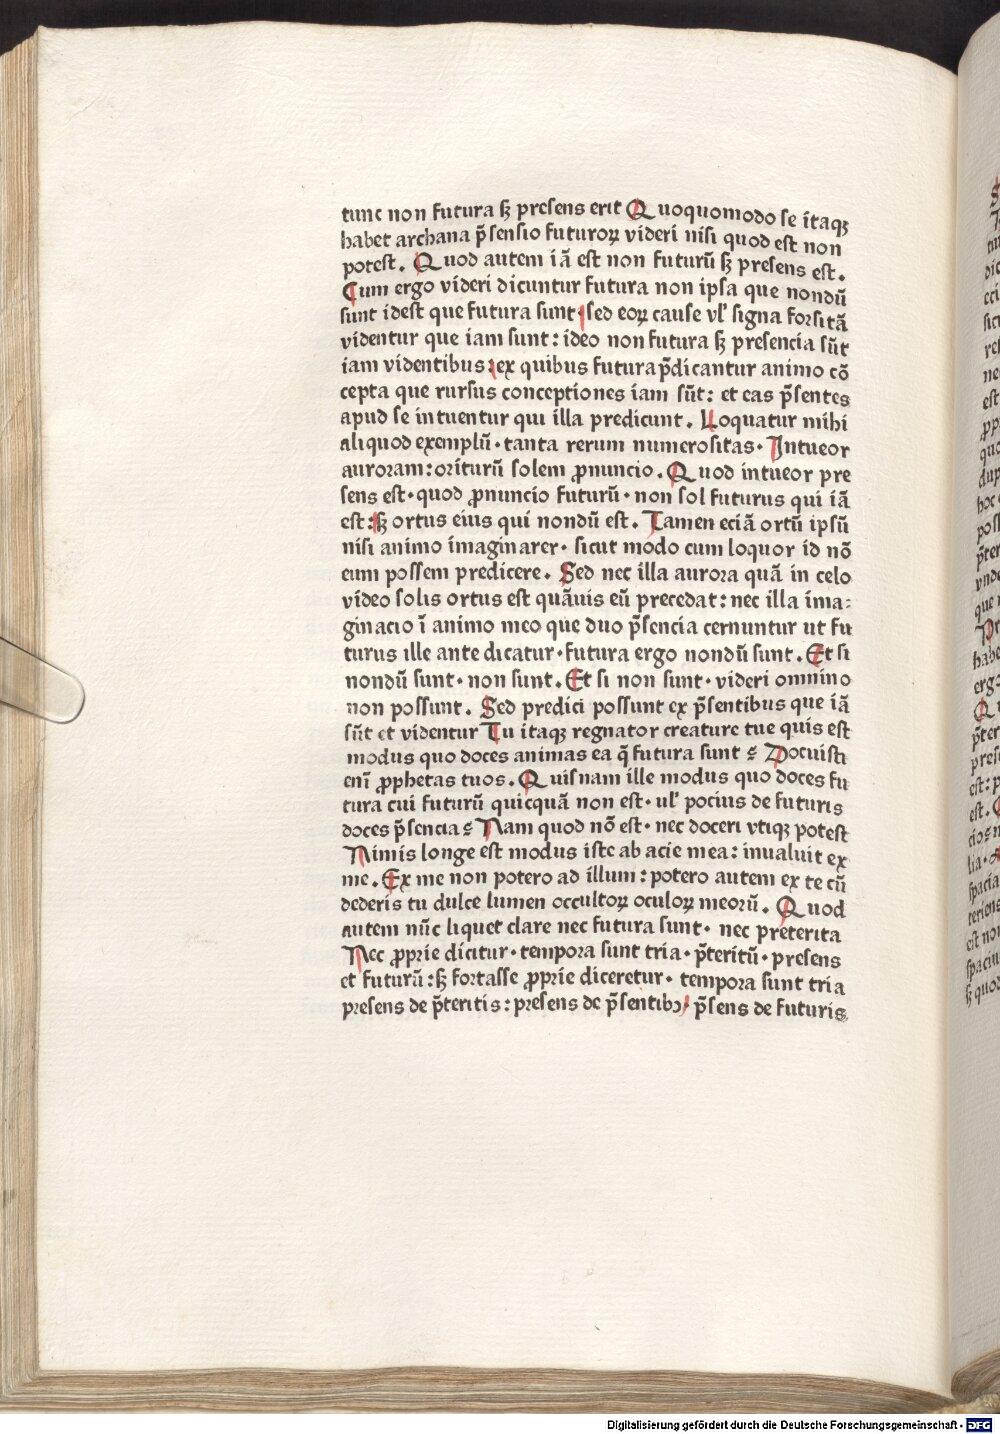 tunc non futura sꝫ presens erit Quoquomodo se itaqꝫ
habet archana p̄sensio futuroꝝ videri nisi quod est non
potest. Quod autem iā est non futurū sꝫ presens est.
Cum ergo videri dicuntur futura non ipsa que nondū
sunt idest que futura sunt sed eoꝝ cause vl' signa forsitā
videntur que iam sunt: ideo non futura sꝫ presencia sūt
iam videntibus: ex quibus futura p̄dicantur animo cō
cepta que rursus conceptiones iam sūt: et eas p̄sentes
apud se intuentur qui illa predicunt. Loquatur mihi
aliquod exemplū· tanta rerum numerositas· Intueor
auroram: oriturū solem ꝓnuncio. Quod intueor pre
sens est· quod ꝓnuncio futurū· non sol futurus qui iā
est: sꝫ ortus eius qui nondū est. Tamen eciā ortū ipsū
nisi animo imaginarer· sicut modo cum loquor id nō
eum possem predicere. Sed nec illa aurora quā in celo
video solis ortus est quāuis eū precedat: nec illa ima⸗
ginacio ī animo meo que duo p̄sencia cernuntur ut fu
turus ille ante dicatur· futura ergo nondū sunt. Et si
nondū sunt· non sunt. Et si non sunt· videri omnino
non possunt. Sed predici possunt ex p̄sentibus que iā
sūt et videntur Tu itaqꝫ regnator creature tue quis est
modus quo doces animas ea q̄ futura sunt ⸮ Docuisti
enī ꝓphetas tuos. Quisnam ille modus quo doces fu
tura cui futurū quicquā non est· ul' pocius de futuris
doces p̄sencia ⸮ Nam quod nō est· nec doceri vtiqꝫ potest
Nimis longe est modus iste ab acie mea: inualuit ex
me. Ex me non potero ad illum: potero autem ex te cū
dederis tu dulce lumen occultoꝝ oculoꝝ meorū. Quod
autem nūc liquet clare nec futura sunt· nec preterita
Nec ꝓprie dicitur· tempora sunt tria· p̄teritū· presens
et futurū: sꝫ fortasse ꝓprie diceretur· tempora sunt tria
presens de p̄teritis: presens de p̄sentibꝰ· p̄sens de futuris
Digitalisierung gefördert durch die Deutsche Forschungsgemeinschaft - DFG